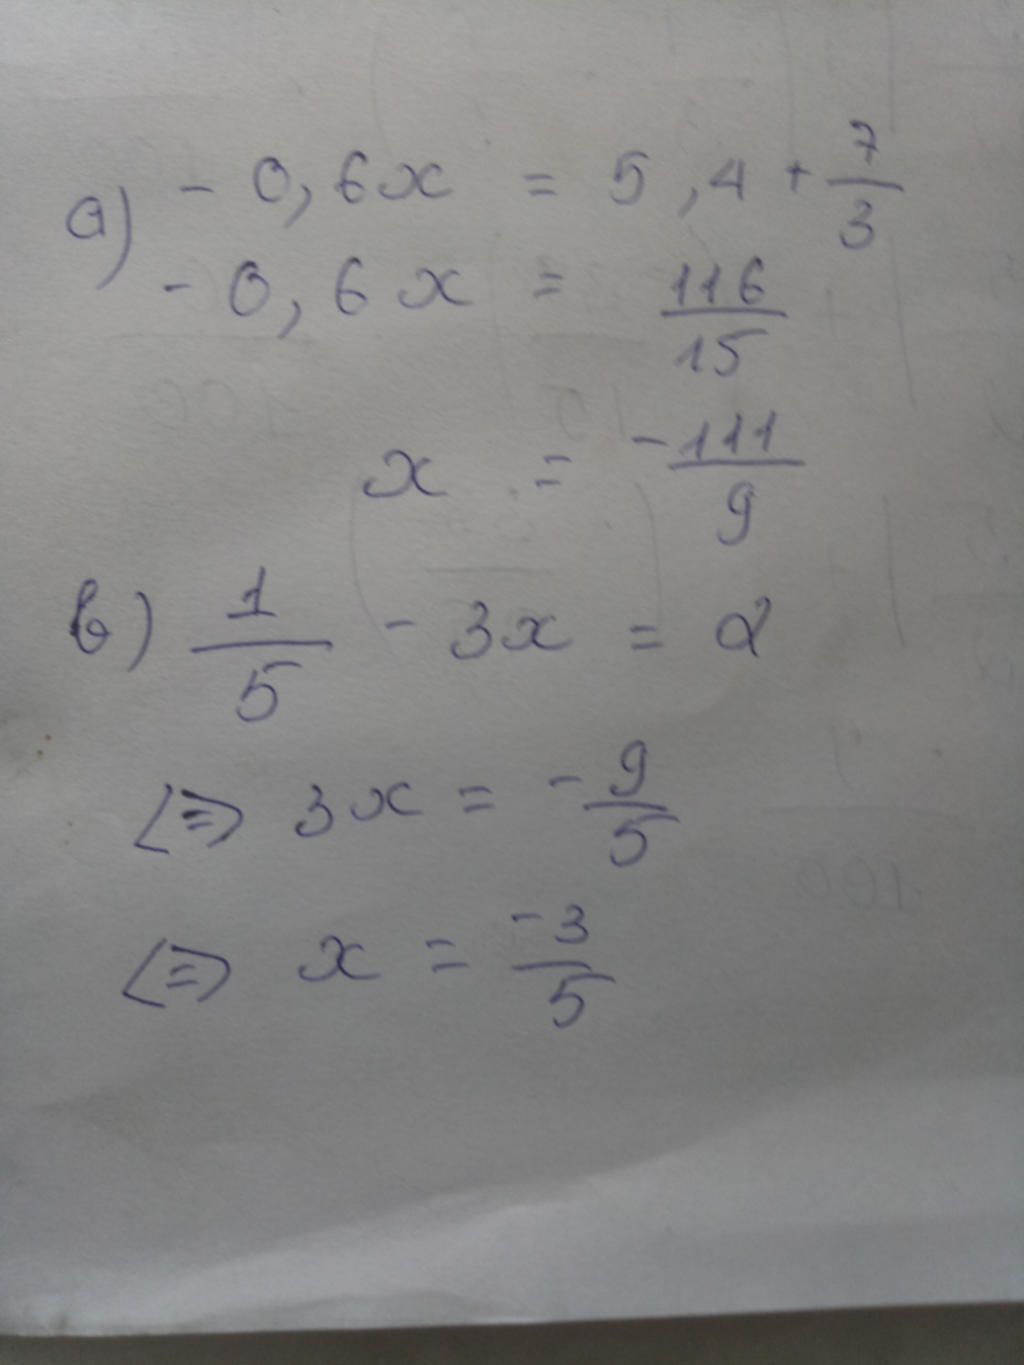 a) - 0,6x = 5,4 + 7/3
- 0,6x = 116/15
x = -111/9
b) 1/5 - 3x = 2
<=> 3x = - 9/5
<=> x = -3/5